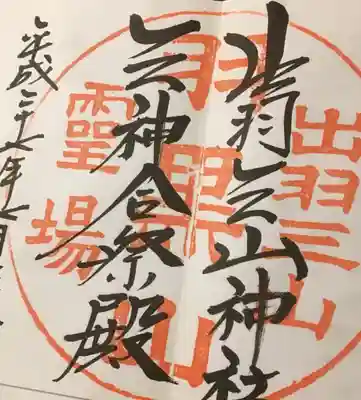 出羽三山神社
三神合祭殿
平成二十七年七月
出羽三山
羽黒山
靈場